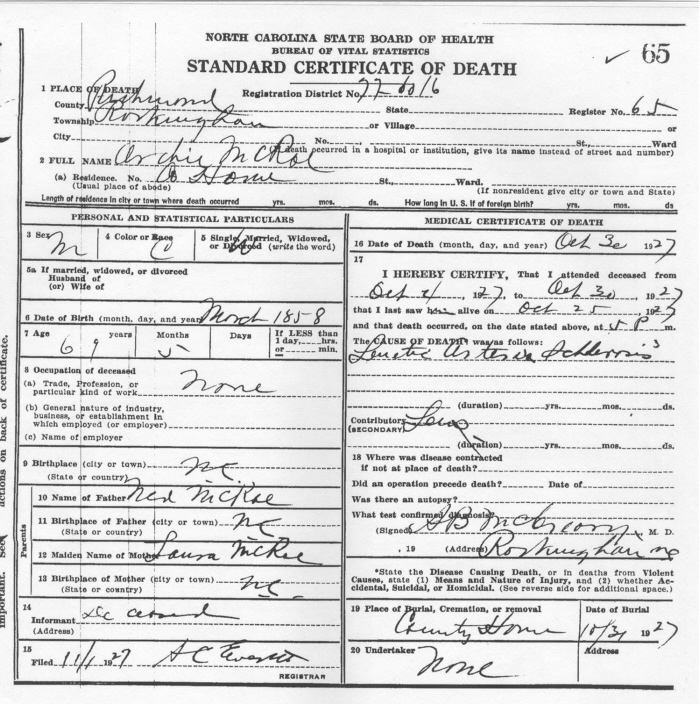 NORTH CAROLINA STATE BOARD OF HEALTH
BUREAU OF VITAL STATISTICS
STANDARD CERTIFICATE OF DEATH
✓ 65
1 PLACE OF DEATH
Registration District No. 77-6016
County Richmond State Register No. 65
Township Rockingham or Village or
City No. St., Ward
(If death occurred in a hospital or institution, give its name instead of street and number)
2 FULL NAME Archie McRae
(a) Residence. No. Co Home St., Ward.
(Usual place of abode) (If nonresident give city or town and State)
Length of residence in city or town where death occurred yrs. mos. ds. How long in U. S. if of foreign birth? yrs. mos. ds.
PERSONAL AND STATISTICAL PARTICULARS
3 Sex M 4 Color or Race C 5 Single, Married, Widowed, or Divorced (write the word)
5a If married, widowed, or divorced
Husband of
(or) Wife of
6 Date of Birth (month, day, and year) March 1858
7 Age 69 years Months 5 Days If LESS than
1 day, hrs.
or min.
8 Occupation of deceased
(a) Trade, Profession, or
particular kind of work None
(b) General nature of industry,
business, or establishment in
which employed (or employer)
(c) Name of employer
9 Birthplace (city or town) NC
(State or country)
Parents
10 Name of Father Ned McRae
11 Birthplace of Father (city or town) NC
(State or country)
12 Maiden Name of Mother Laura McRae
13 Birthplace of Mother (city or town) NC
(State or country)
14
Informant
(Address)
15
Filed 11/1 1927 A C Everett
REGISTRAR
MEDICAL CERTIFICATE OF DEATH
16 Date of Death (month, day, and year) Oct 30 1927
17
I HEREBY CERTIFY, That I attended deceased from
Oct 1, 1927, to Oct 30, 1927
that I last saw him alive on Oct 25 1927
and that death occurred, on the date stated above, at 5 P m.
The CAUSE OF DEATH* was as follows:
(duration) yrs. mos. ds.
Contributory
(SECONDARY)
(duration) yrs. mos. ds.
18 Where was disease contracted
if not at place of death?
Did an operation precede death? Date of
Was there an autopsy?
What test confirmed diagnosis?
(Signed) M. D.
, 19 (Address) Rockingham NC
*State the Disease Causing Death, or in deaths from Violent
Causes, state (1) Means and Nature of Injury, and (2) whether Accidental, Suicidal, or Homicidal. (See reverse side for additional space.)
19 Place of Burial, Cremation, or removal Date of Burial
County Home 10/31 1927
20 Undertaker Address
None
important. See
actions on back of certificate.